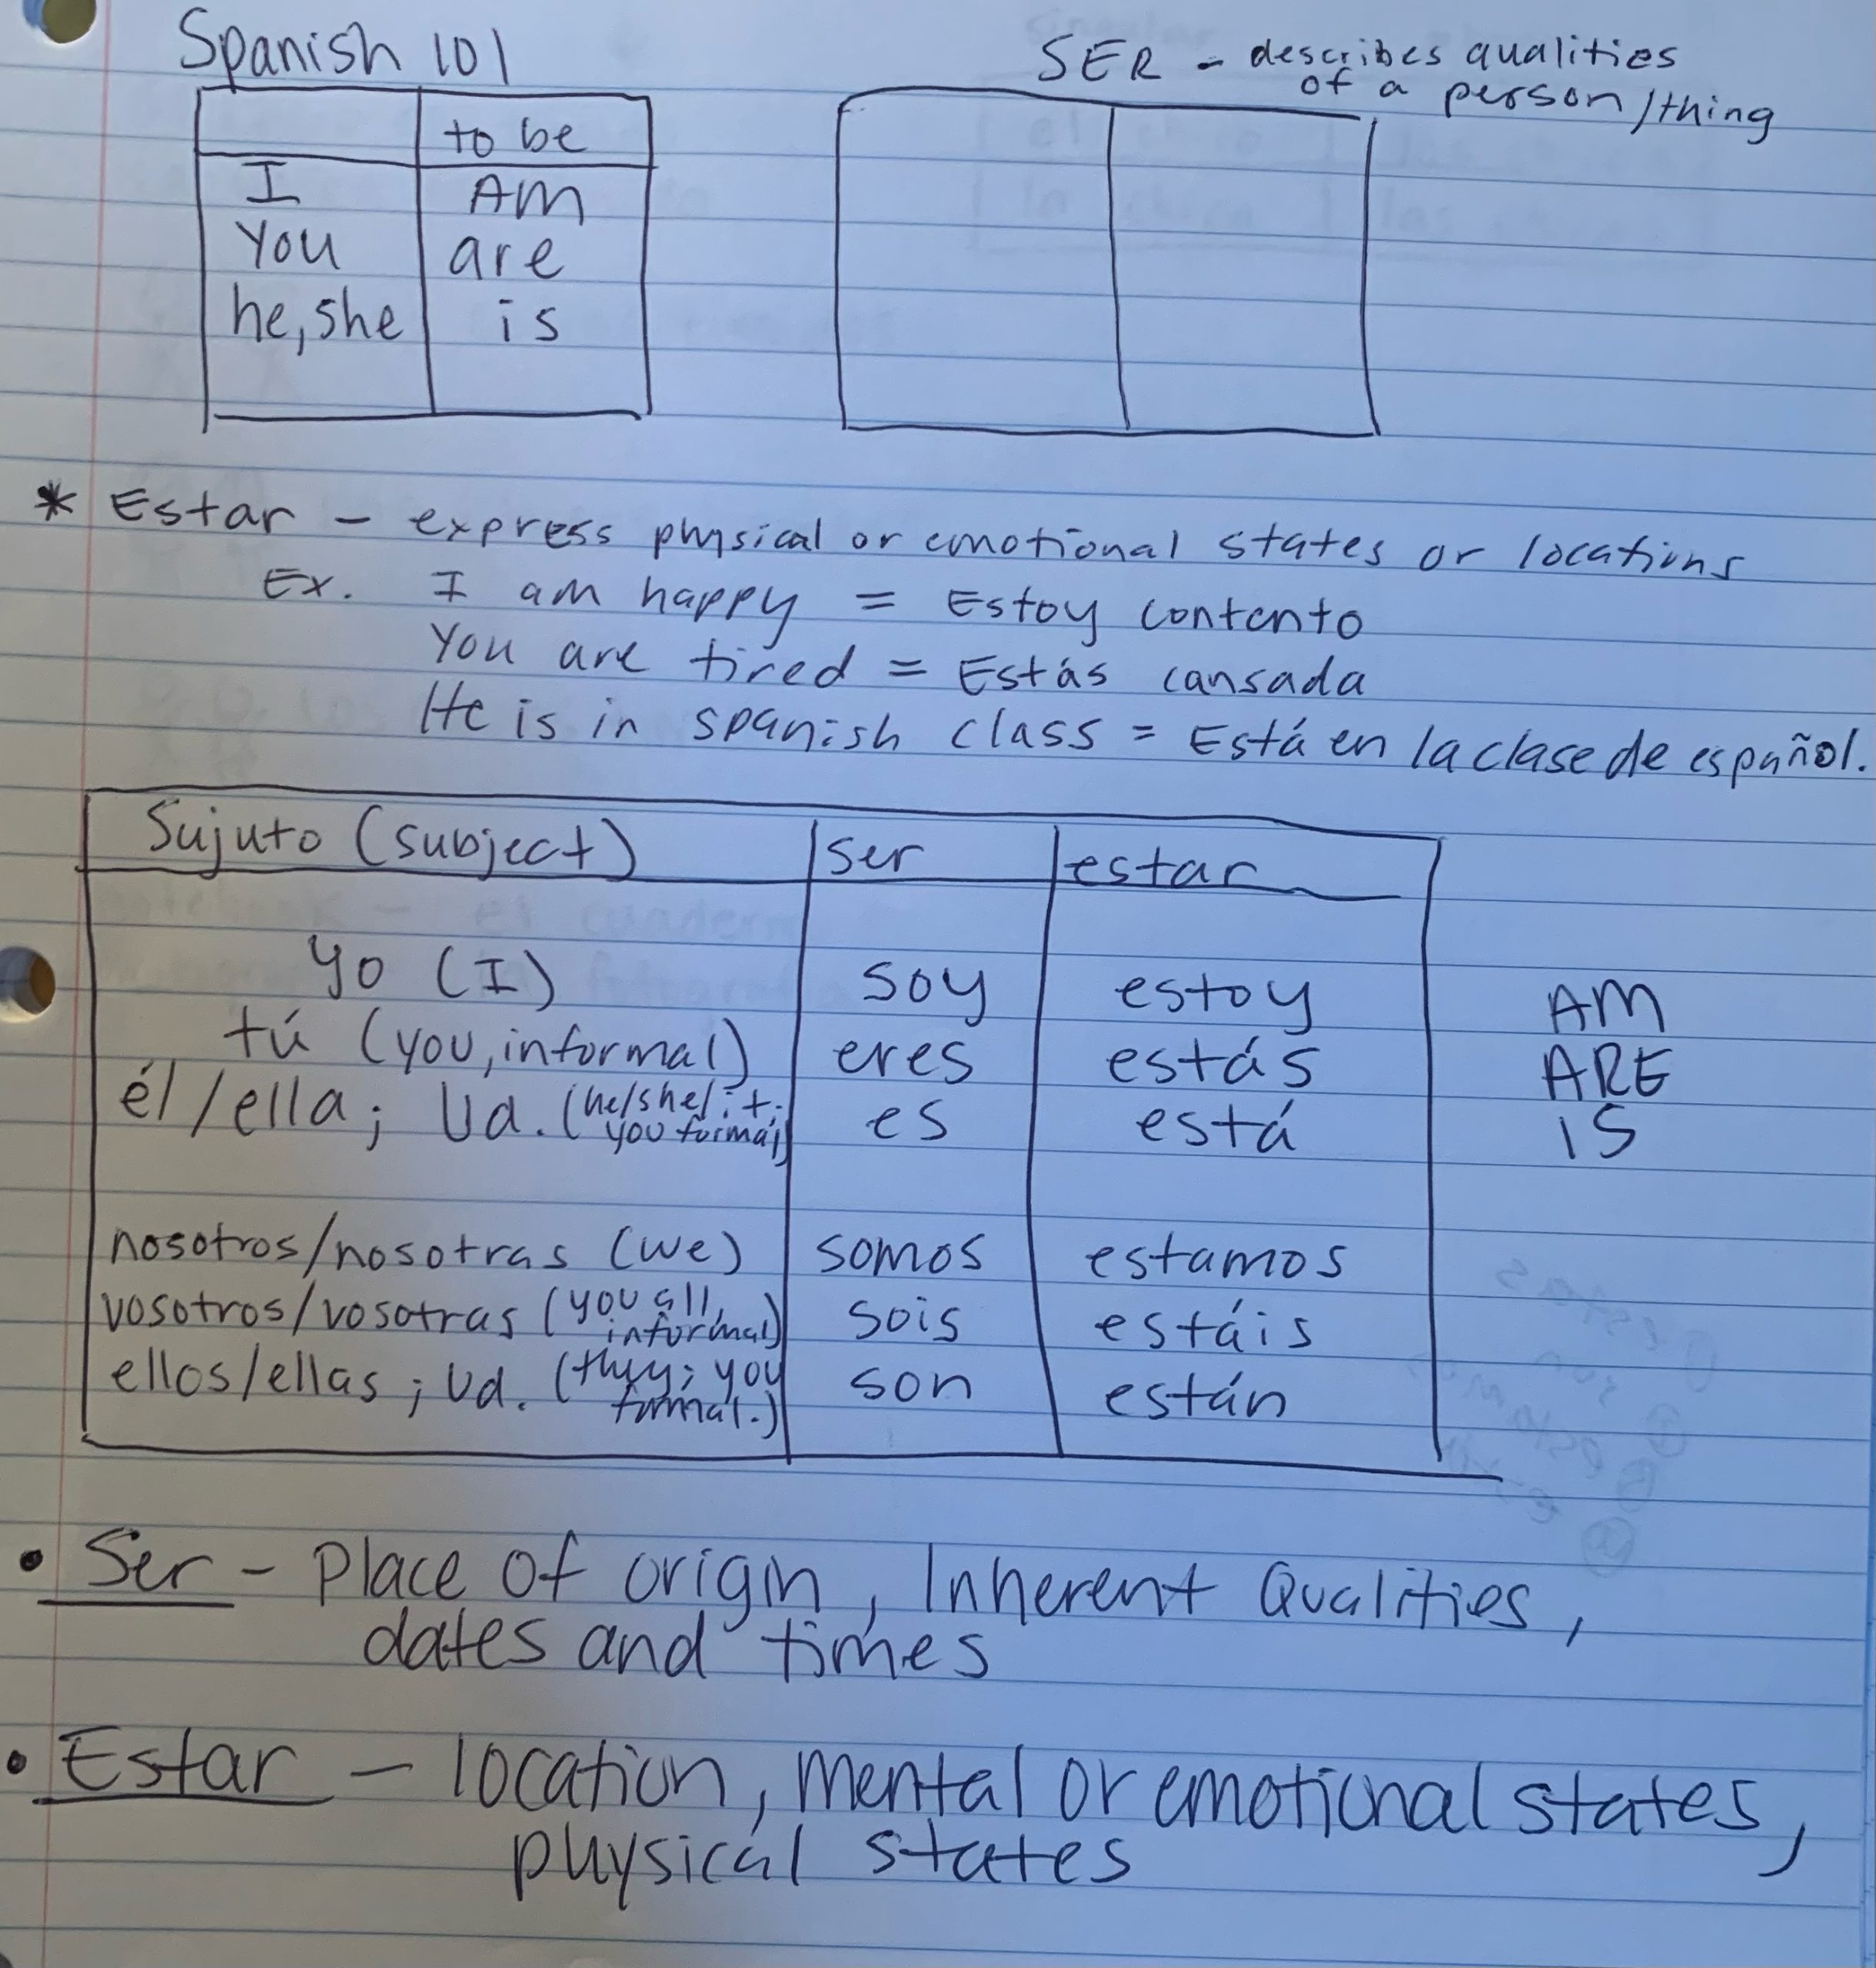 Spanish 101
to be
I AM
You are
he, she is
SER - describes qualities
of a person/thing
* Estar - express physical or emotional states or locations
Ex. I am happy = Estoy contento
You are tired = Estás cansada
He is in spanish class = Está en la clase de español.
Sujuto (subject) ser estar
yo (I) soy estoy AM
tú (you, informal) eres estás ARE
él/ella; Ud. (he/she/it; you formal) es está IS
nosotros/nosotras (we) somos estamos
vosotros/vosotras (you all, informal) sois estáis
ellos/ellas; Ud. (they; you formal.) son están
• Ser - Place of origin, Inherent Qualities,
dates and times
• Estar - location, mental or emotional states,
physical states